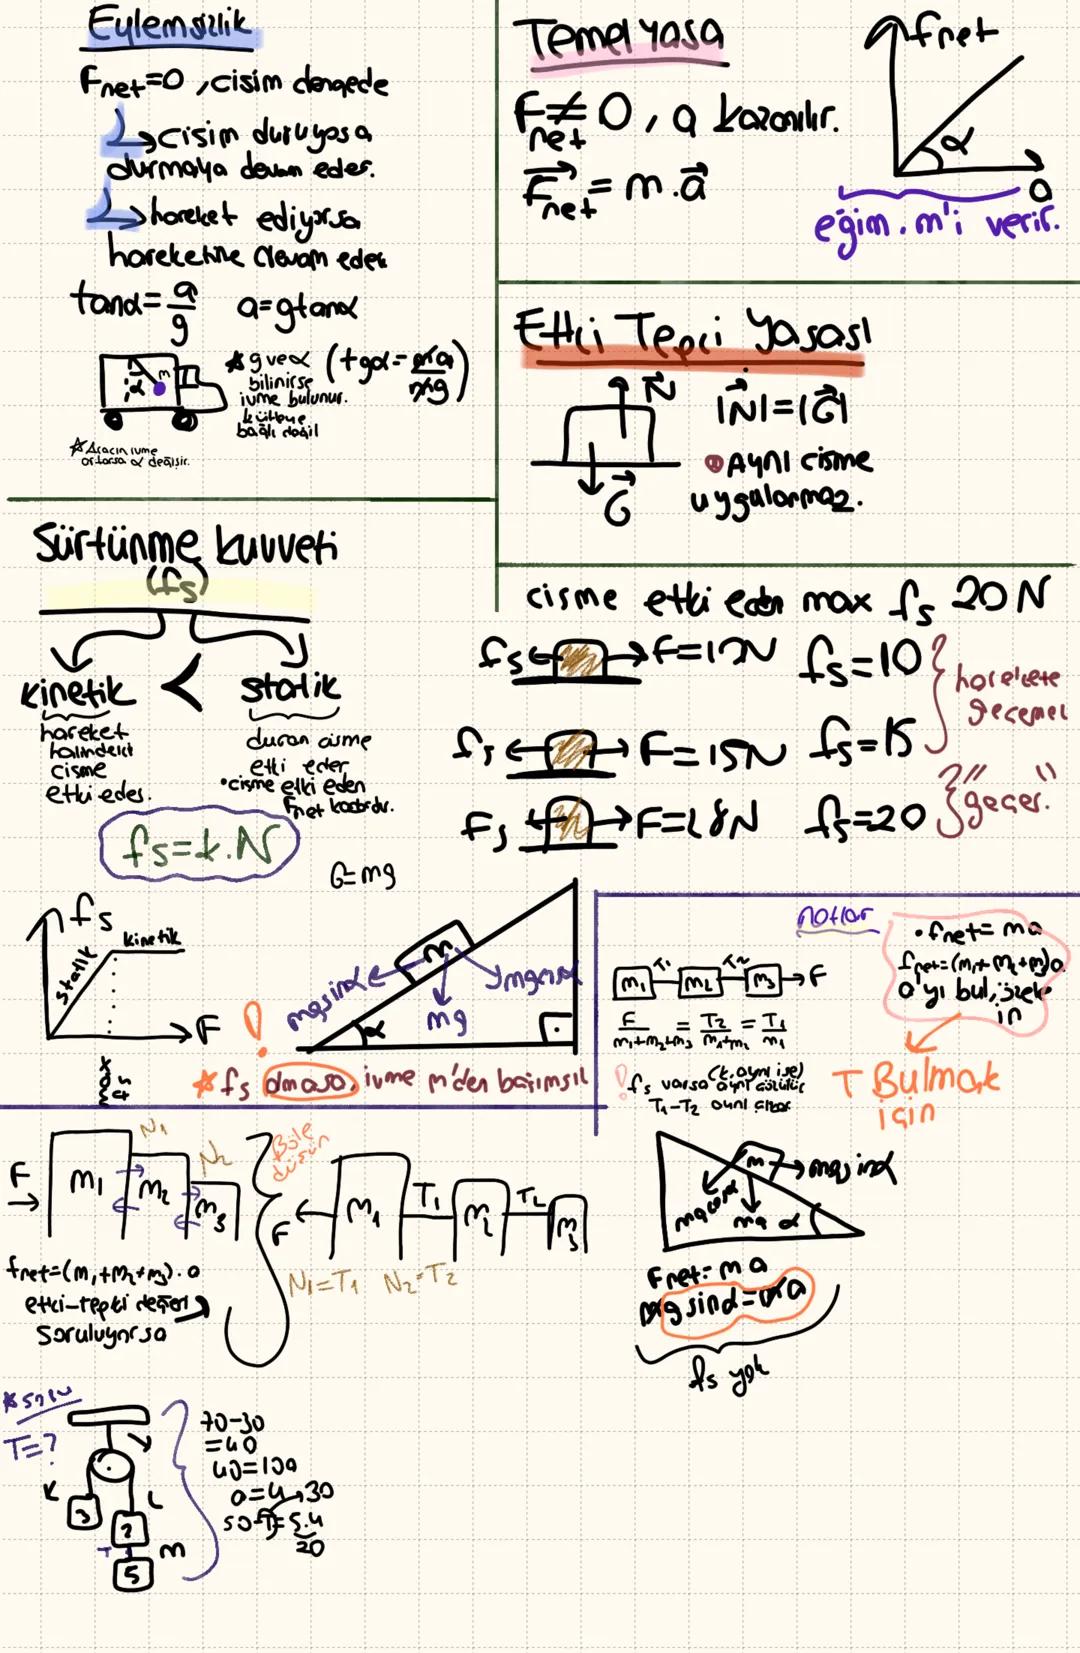 Eylemsizlik
Fnet=0, cisim dengede
cisim duruyosa
durmaya devam eder.
hareket ediyorsa
hareketine devam eder
tanα=a/g a=gtanα
m
α
*g ve α (tgα=ma/mg)
bilinirse
ivme bulunur.
kütleye
bağlı değil
*Aracın ivme
artarsa α değişir.
Temel yasa
Fnet≠0, a kazanılır.
Fnet=m.a
fnet
α
a
eğim. m'i verir.
Etki Tepki Yasası
N
G
|N|=|G|
Aynı cisme
uygulanmaz.
Sürtünme kuvveti
(fs)
kinetik < statik
hareket
halindeki
cisme
etki eder.
duran cisme
etki eder
•cisme etki eden
Fnet kadardır.
fs=k.N
cisme etki eden max fs 20N
fs F=10N fs=10
harekete
geçemez
fs F=15N fs=15
Fs F=18N fs=20
" "
geçer.
fs
statik
kinetik
F
G=mg
m
mgsinα
ymgcosα
mg
α
! *fs olmasa, ivme m'den bağımsız
notlar
m1 T1 m2 T2 m3 F
F/m1+m2+m3 = T2/m1+m2 = T1/m1
! fs varsa (k aynı ise) aynı
T1-T2 aynı çıkar
•fnet=ma
fnet=(m1+m2+m3)a
a'yı bul,
in
T Bulmak
için
F
m1 m2 m3
N1
N2
fnet=(m1+m2+m3).a
etki-tepki değeri
soruluyorsa
Böle
düşün
F m1 T1 m2 T2 m3
N1=T1 N2=T2
m
mgsinα
mgcosα
mg α
Fnet=ma
mgsinα=ma
fs yok
*soru
T=?
3
2
T
5
m
70-30
=40
40=10a
a=4
50-T=5.4
20
30